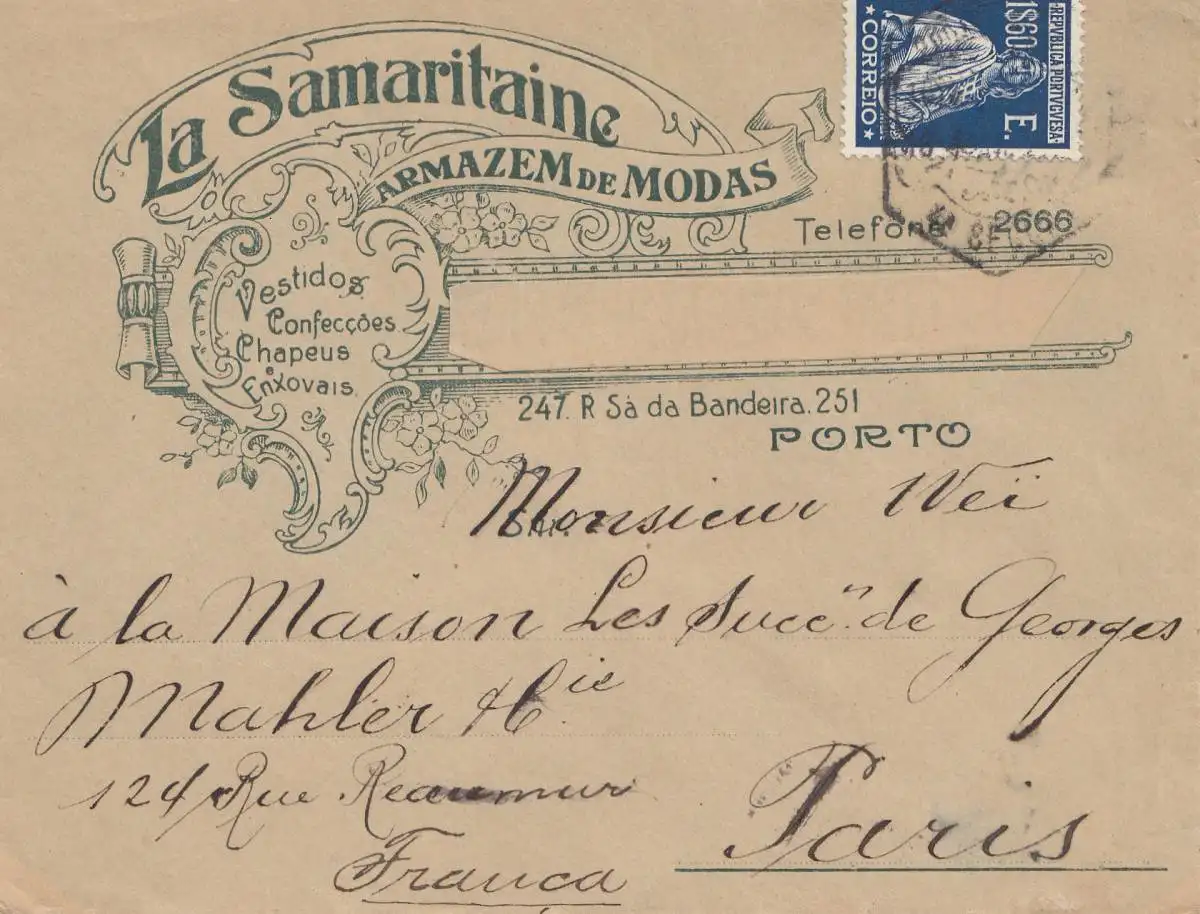 La Samaritaine
ARMAZEM DE MODAS
REPVBLICA PORTVGVESA
1$60 E.
CORREIO
Telefone 2666
Vestidos
Confecções
Chapeus
e
Enxovais
247. R Sá da Bandeira. 251
PORTO
Monsieur Weï
à la Maison Les Succ.rs de Georges
Mahler & Cie
124 Rue Reaumur
Paris
França